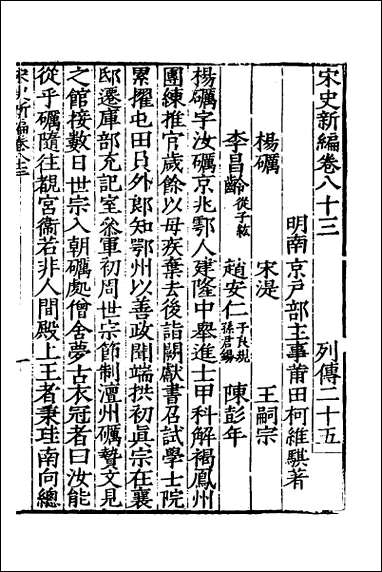 宋史新編卷八十三　列傳二十五
明南京戶部主事莆田柯維騏著
楊礪　宋湜　王嗣宗
李昌齡從子紘　趙安仁子良規孫君錫　陳彭年
楊礪字汝礪京兆鄠人建隆中舉進士甲科解褐鳳州
團練推官歲餘以母疾棄去後詣闕獻書召試學士院
累擢屯田員外郎知鄂州以善政聞端拱初眞宗在襄
邸遷庫部充記室叅軍初周世宗節制澶州礪贄文見
之館接數日世宗入朝礪處僧舍夢古衣冠者曰汝能
從乎礪隨往觀宮衞若非人間殿上王者秉珪南向總
宋史新編卷八十三　一